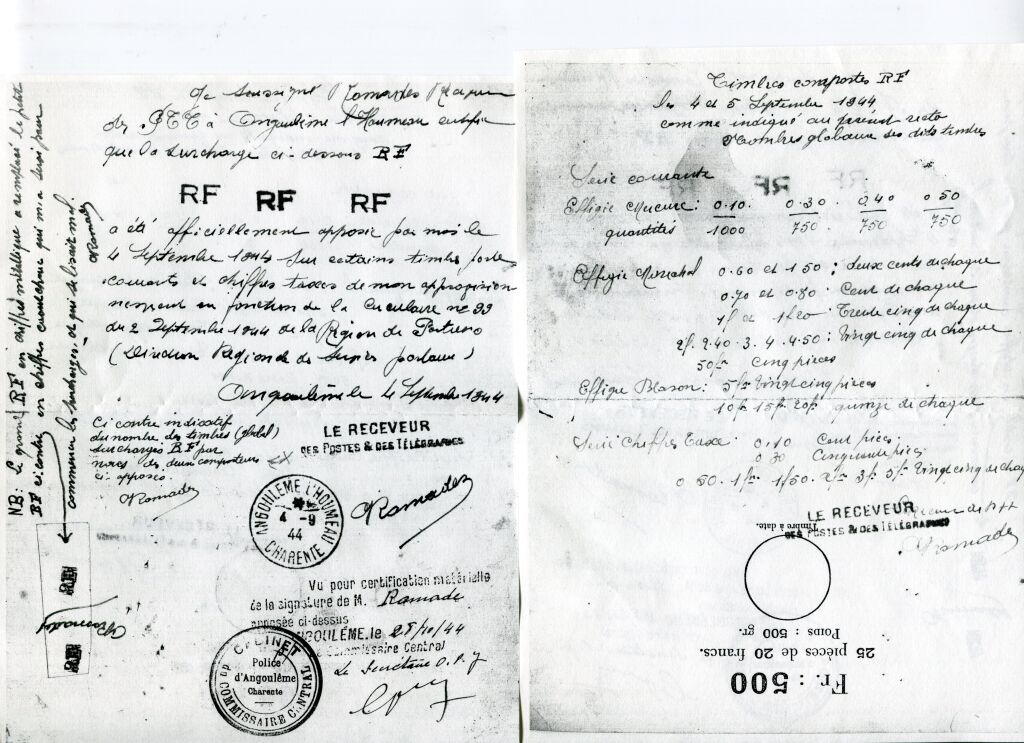 Je soussigné Romadez Receveur
des PTT à Angoulême l'Houmeau certifie
que la surcharge ci-dessous RF
RF RF RF
a été officiellement apposée par moi le
4 Septembre 1944 sur certains timbres poste
courants et chiffres taxes de mon approvision
nement en fonction de la Circulaire no 99
du 2 Septembre 1944 de la Région de Poitiers
(Direction Régionale des Services postaux)
Angoulême le 4 Septembre 1944
NB: Le grand RF en chiffres métallique a remplacé le petit
RF ci-contre en chiffres caoutchouc qui m'a servi pour
commencer les surcharges, et qui se lisait mal.
Romadez
Ci contre indicatif
du nombre des timbres (global)
surchargés RF par
nous des deux composteurs
ci apposés.
Romadez
LE RECEVEUR
DES POSTES & DES TÉLÉGRAPHES
ANGOULEME L'HOUMEAU
4 -9
44
CHARENTE
Romadez
RF
RF
Romadez
Vu pour certification matérielle
de la signature de M. Romade
apposée ci-dessus
ANGOULÊME, le 28/10/44
Commissaire Central
Le Secrétaire
CABINET
Police
d'Angoulême
Charente
du COMMISSAIRE CENTRAL
Timbres compostés RF
les 4 et 5 Septembre 1944
comme indiqué au présent recto
Nombres globaux des dits timbres
Série courante
Effigie Mercure: 0.10. 0.30 0.40 0.50
quantités 1000 750 750 750
Effigie Maréchal 0.60 et 1.50 : deux cents de chaque
0.70 et 0.80 : Cent de chaque
1f et 1f20 : Trente cinq de chaque
2f. 2.40. 3. 4. 4.50 : Vingt cinq de chaque
50f Cinq pièces
Effigie Blason: 5f Vingt cinq pièces
10f 15f 20f quinze de chaque
Série Chiffres Taxe : 0.10 Cent pièces
0.30 Cinquante pièces
0.50. 1f 1f50. 2f 3f 5f Vingt cinq de chaq
LE RECEVEUR
DES POSTES & DES TÉLÉGRAPHES
Romadez
Timbre à date.
Poids : 500 gr.
25 pièces de 20 francs.
Fr. : 500